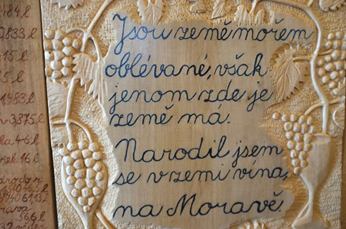 Jsou země mořem
oblévané, však
jenom zde je
země má.
Narodil jsem
se v zemi vína,
na Moravě.